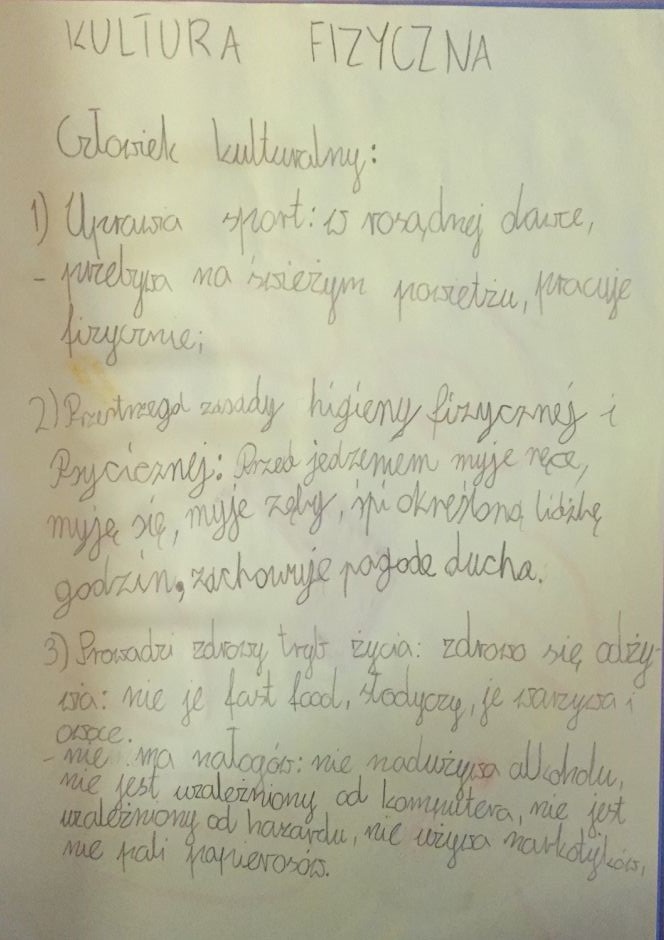 KULTURA FIZYCZNA
Człowiek kulturalny:
1) Uprawia sport: w rosądnej dawce,
- przebywa na świeżym powietżu, pracuje
fizycznie;
2) Przestrzega zasady higieny fizycznej i
Psycicznej: Przed jedzeniem myje ręce,
myję się, myje zęby, śpi określoną lidżbę
godzin, zachowuje pogodę ducha.
3) Prowadzi zdrowy tryb życia: zdrowo się odży-
wia: nie je fast food, słodyczy, je warzywa i
owoce.
- nie ma nałogów: nie nadużywa alkoholu,
nie jest uzależniony od komputera, nie jest
uzależniony od hazardu, nie używa narkotyków,
nie pali papierosów.